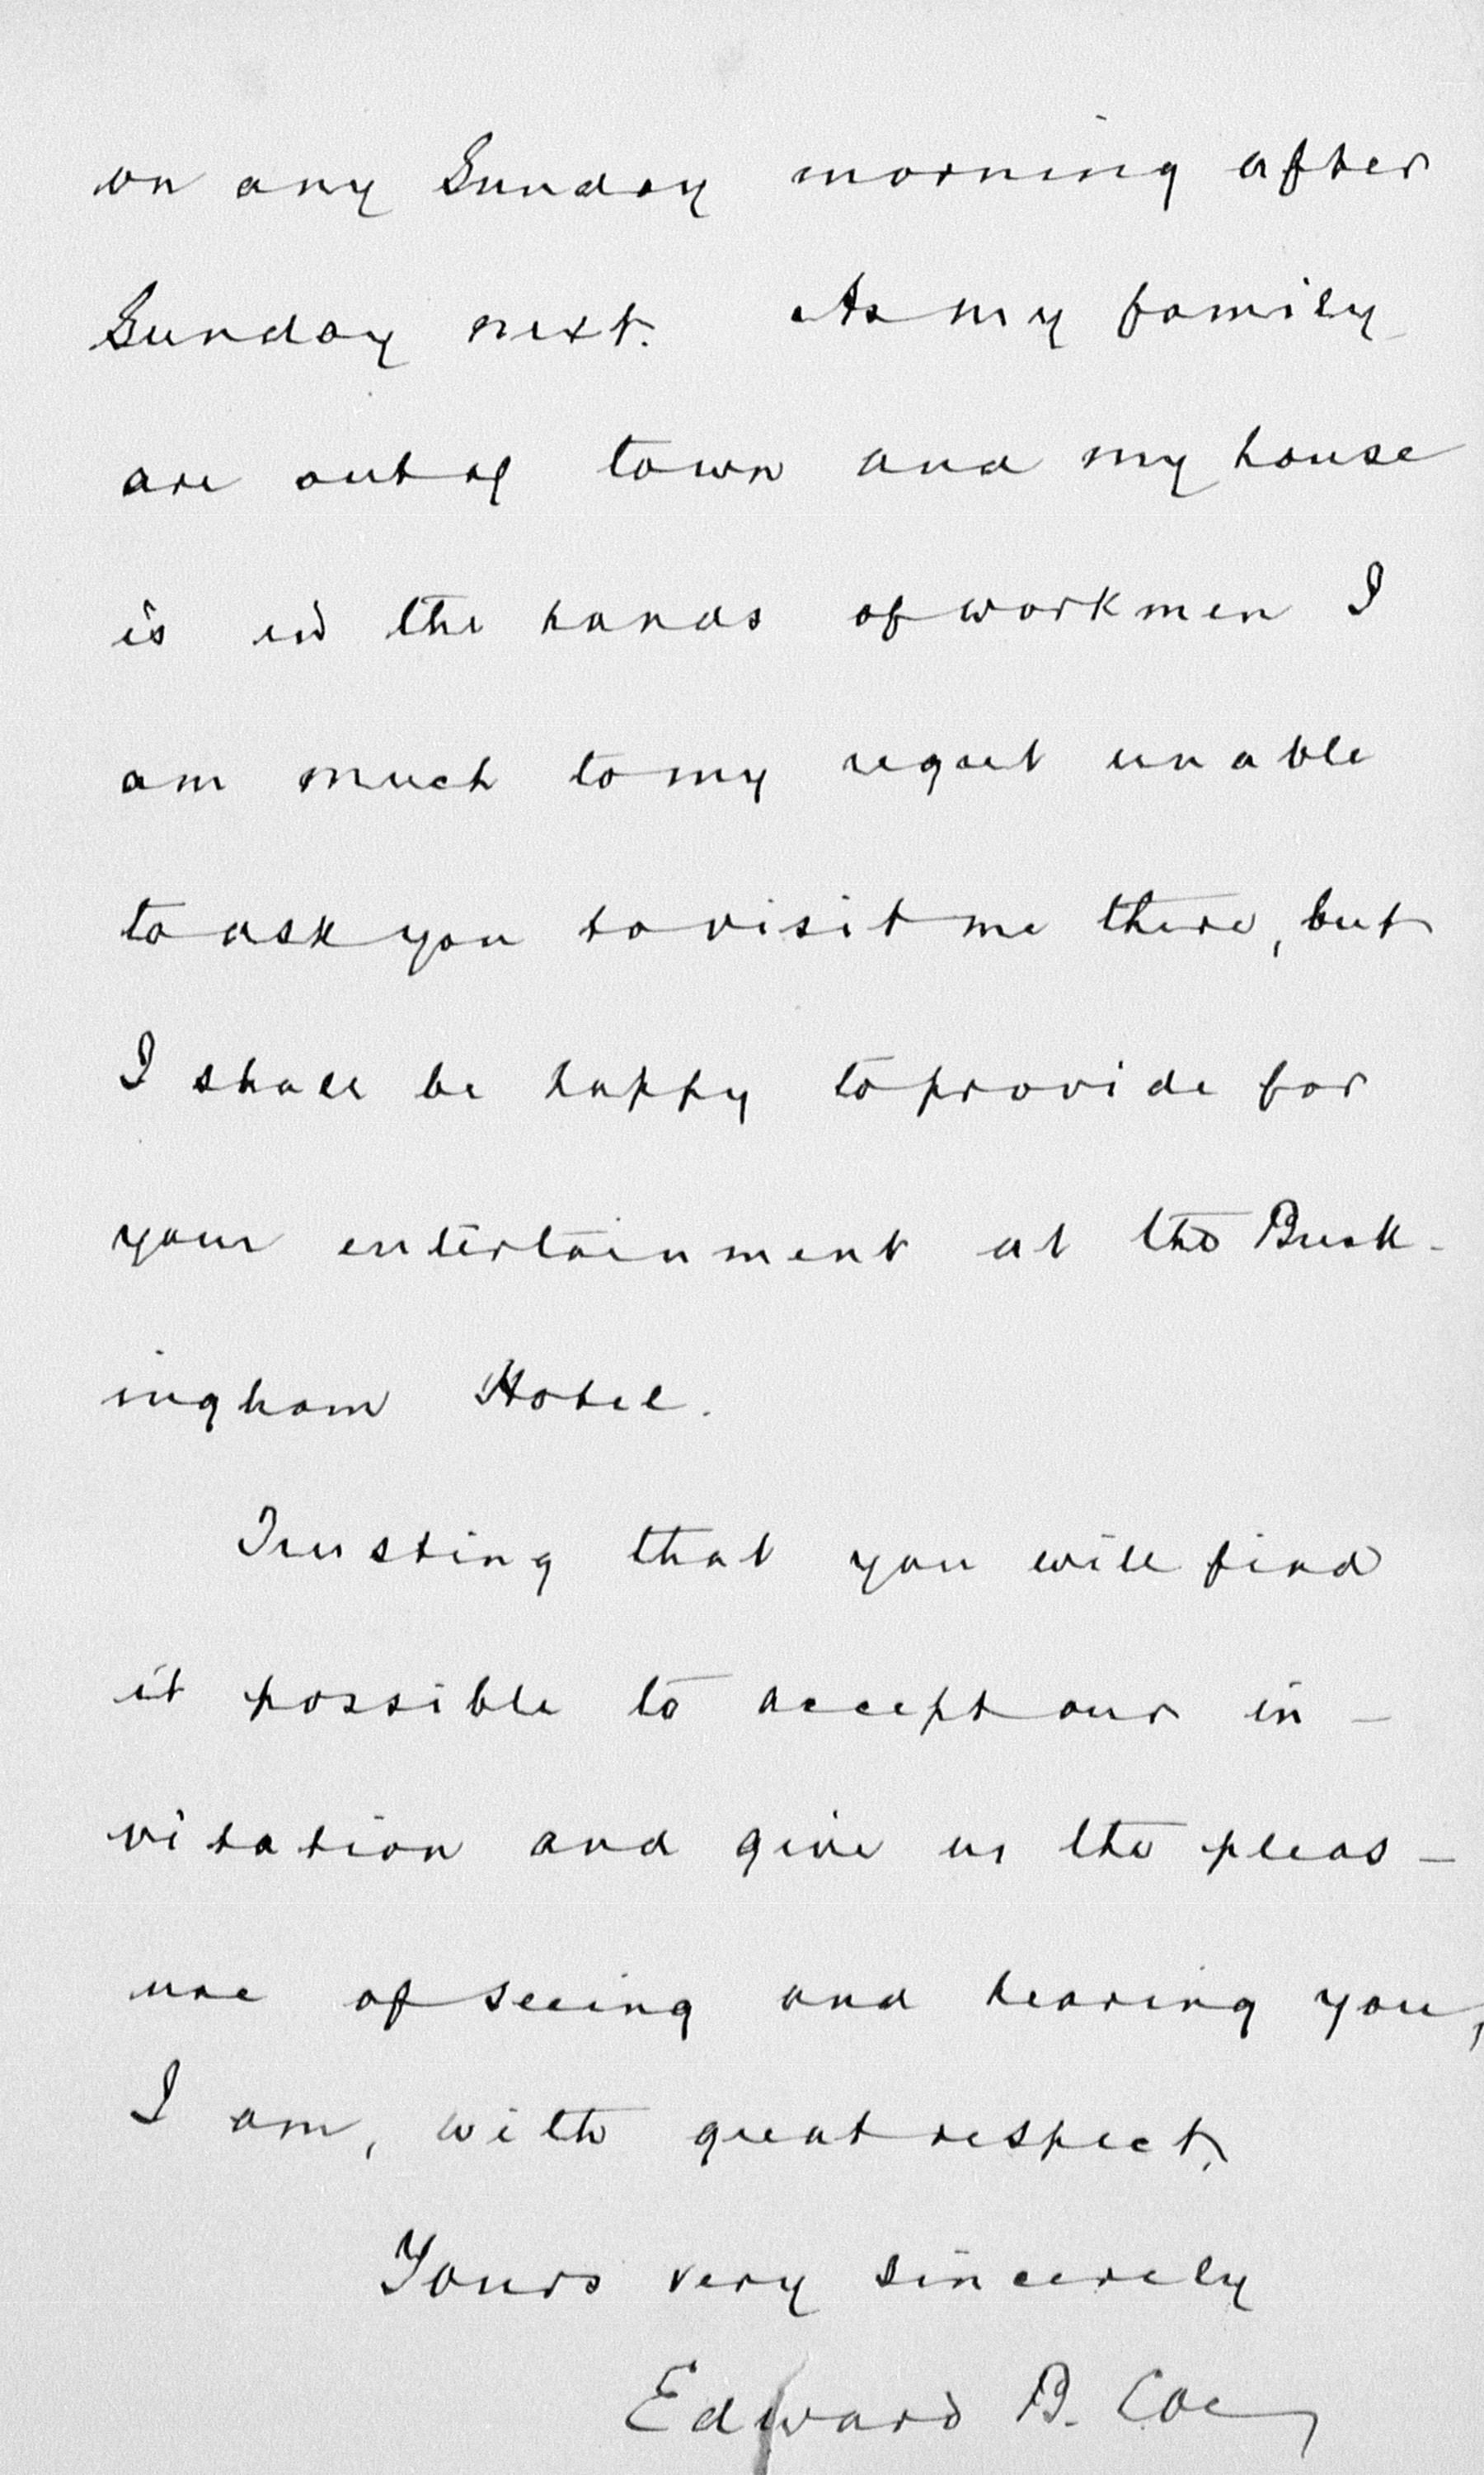 on any Sunday morning after
Sunday next. As my family
are out of town and my house
is in the hands of workmen I
am much to my regret unable
to ask you to visit me there, but
I shall be happy to provide for
your entertainment at the Buck-
ingham Hotel.
Trusting that you will find
it possible to accept our in-
vitation and give us the pleas-
ure of seeing and hearing you,
I am, with great respect,
Yours very sincerely
Edward B. Coe